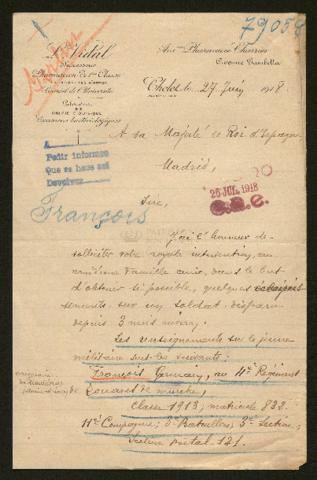 79054
A. Vidal
Successeur
Pharmacien de 1ère Classe
Lauréat de l'Université
Examens bactériologiques
Anc.ne Pharmacie Charrier
Avenue Gambetta
Cholet, le 27 Juin 1918.
A sa Majesté le Roi d'Espagne
Madrid,
Pedir informes
Que se hace así
Devolver
26 JUL. 1918
François
Sire,
J'ai l'honneur de
solliciter votre royale intervention, au
nom d'une famille amie, dans le but
d'obtenir si possible, quelques
sur un soldat disparu
depuis 3 mois environ.
Les renseignements sur le jeune
militaire sont les suivants:
François Germain, au 4e Régiment
de Zouaves de marche,
Classe 1913, matricule 832.
11e Compagnie; 3e Bataillon, 3e Section,
Secteur postal 131.